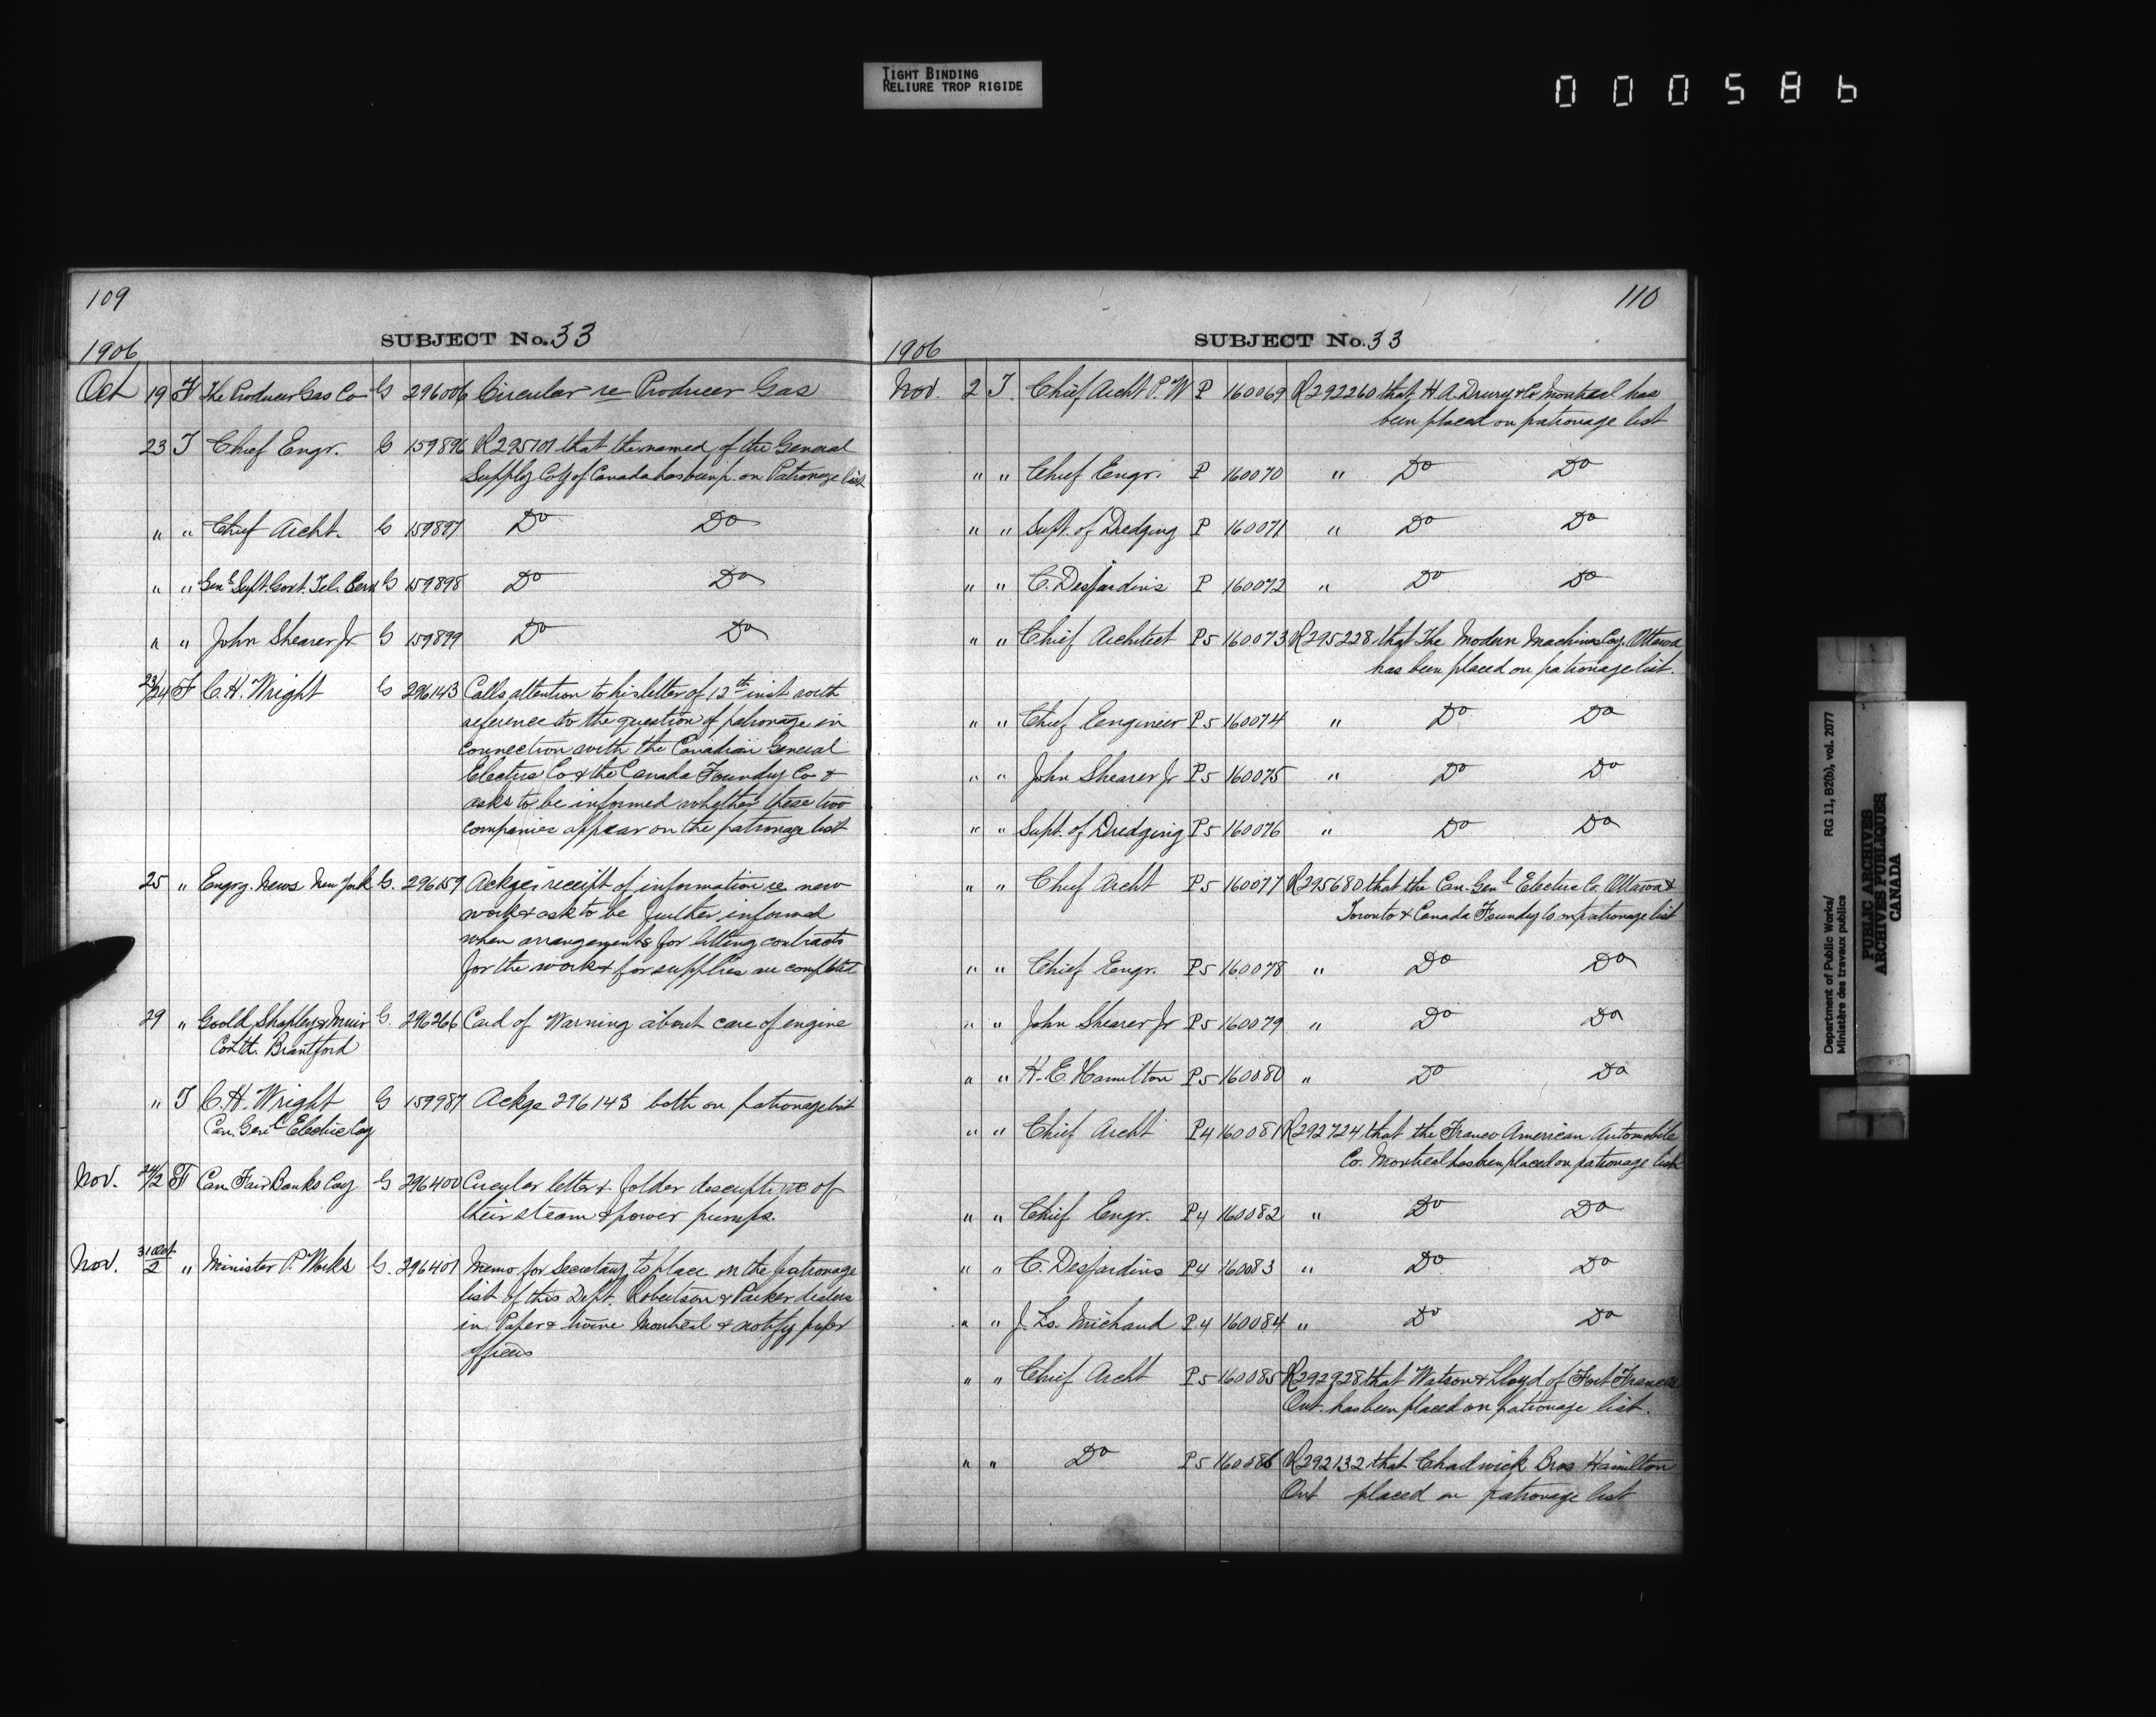 TIGHT BINDING
RELIURE TROP RIGIDE
000586
109
SUBJECT No. 33
1906
Oct 19 F The Producer Gas Co G 296006 Circular re Producer Gas
23 T Chief Engr. G 159896 R295101 that the named of the General
Supply Coy of Canada has been p. on Patronage list
" " Chief Archt. G 159897 Do Do
" " Genl Supt. Govt. Tel. Serv G 159898 Do Do
" " John Shearer Jr G 159899 Do Do
23/24 F C. H. Wright G 296143 Calls attention to his letter of 12th inst with
reference to the question of patronage in
connection with the Canadian General
Electric Co & the Canada Foundry Co &
asks to be informed whether these two
companies appear on the patronage list
25 " Engrg. News New York G. 296159 Ackges receipt of information re new
work & ask to be further informed
when arrangements for letting contracts
for the work & for supplies are completed
29 " Goold, Shapley & Muir G. 296266 Card of Warning about care of engine
Co Ltd. Brantford
" T C. H. Wright G 159987 Ackge 296143 both on patronage list
Can. Genl Electric Coy
Nov. 24/2 F Can. Fair Banks Coy G 296400 Circular letter & folder descriptive of
their steam & power pumps.
Nov. 31 Oct/2 " Minister P. Works G. 296401 Memo for Secretary to place on the patronage
list of this Dept. Robertson & Parker dealers
in Paper & twine Montreal & notify proper
officers
110
SUBJECT No. 33
1906
Nov. 2 T. Chief Archt P. W P 160069 R292260 that H. A. Drury & Co Montreal has
been placed on patronage list
" " Chief Engr. P 160070 " Do Do
" " Supt. of Dredging P 160071 " Do Do
" " C. Desjardins P 160072 " Do Do
" " Chief Architect P5 160073 R295228 that The Modern Machines Coy. Ottawa
has been placed on patronage list.
" " Chief Eengineer P5 160074 " Do Do
" " John Shearer Jr P5 160075 " Do Do
" " Supt. of Dredging P5 160076 " Do Do
" " Chief Archt P5 160077 R295680 that the Can. Genl Electric Co. Ottawa &
Toronto & Canada Foundry Co on patronage list
" " Chief Eengr. P5 160078 " Do Do
" " John Shearer Jr P5 160079 " Do Do
" " H. E. Hamilton P5 160080 " Do Do
" " Chief Archt P4 160081 R292724 that the Franco American Automobile
Co. Montreal has been placed on patronage list
" " Chief Engr. P4 160082 " Do Do
" " C. Desjardins P4 160083 " Do Do
" " J. Ls. Michaud P4 160084 " Do Do
" " Chief Archt P5 160085 R292928 that Watson & Lloyd of Fort Frances
Ont. has been placed on patronage list.
" " Do P5 160086 R292132 that Chadwick Bros Hamilton
Ont placed on patronage list
Department of Public Works/ RG 11, B2(b), vol. 2077
Ministère des travaux publics
PUBLIC ARCHIVES
ARCHIVES PUBLIQUES
CANADA